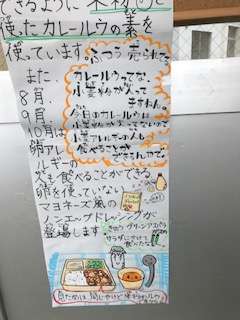 できるように 米粉を
使ったカレールウの素を
使っています。
ふつう 売られてる
カレールウってな、
小麦粉が入って
ますねん。
今日のカレールウは
小麦粉が入ってないから
小麦アレルギーの人も
食べることが
できるんやで。
また、
8月、
9月、
10月は
卵アレ
ルギーが
食べることができる
卵を使っていない
マヨネーズ風の
ノンエッグドレッシングが
登場します。
グリーンアスパラ
サラダにかけて
見ためは 同じやけど